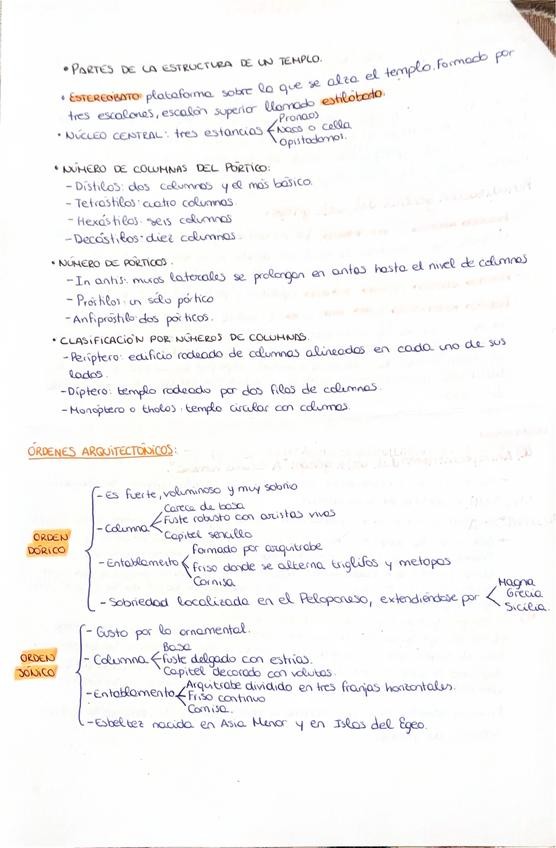 • PARTES DE LA ESTRUCTURA DE UN TEMPLO.
• ESTEREOBATO: plataforma sobre la que se alza el templo. Formado por
tres escalones, escalón superior llamado estilóbato.
• NÚCLEO CENTRAL: tres estancias
Pronaos
Naos o cella
Opistodomos.
• NÚMERO DE COLUMNAS DEL PÓRTICO:
- Dístilos: dos columnas y el más básico.
- Tetrástilos: cuatro columnas.
- Hexástilos: seis columnas
- Decástilos: diez columnas.
• NÚMERO DE PÓRTICOS.
- In antis: muros laterales se prolongan en antas hasta el nivel de columnas
- Próstilos: un sólo pórtico
- Anfipróstilo: dos pórticos.
• CLASIFICACIÓN POR NÚMEROS DE COLUMNAS.
- Períptero: edificio rodeado de columnas alineadas en cada uno de sus
lados.
- Díptero: templo rodeado por dos filas de columnas.
- Monóptero o tholos: templo circular con columnas.
ÓRDENES ARQUITECTÓNICOS:
ORDEN DÓRICO
- Es fuerte, voluminoso y muy sobrio
- Columna
Carece de basa
Fuste robusto con aristas vivas
Capitel sencillo
- Entablamento
Formado por arquitrabe
Friso donde se alterna triglifos y metopas
Cornisa
- Sobriedad localizada en el Peloponeso, extendiéndose por
Magna
Grecia
Sicilia.
ORDEN JÓNICO
- Gusto por lo ornamental.
- Columna
Basa
Fuste delgado con estrías.
Capitel decorado con volutas.
- Entablamento
Arquitrabe dividido en tres franjas horizontales.
Friso continuo
Cornisa.
- Esbeltez nacida en Asia Menor y en Islas del Egeo.